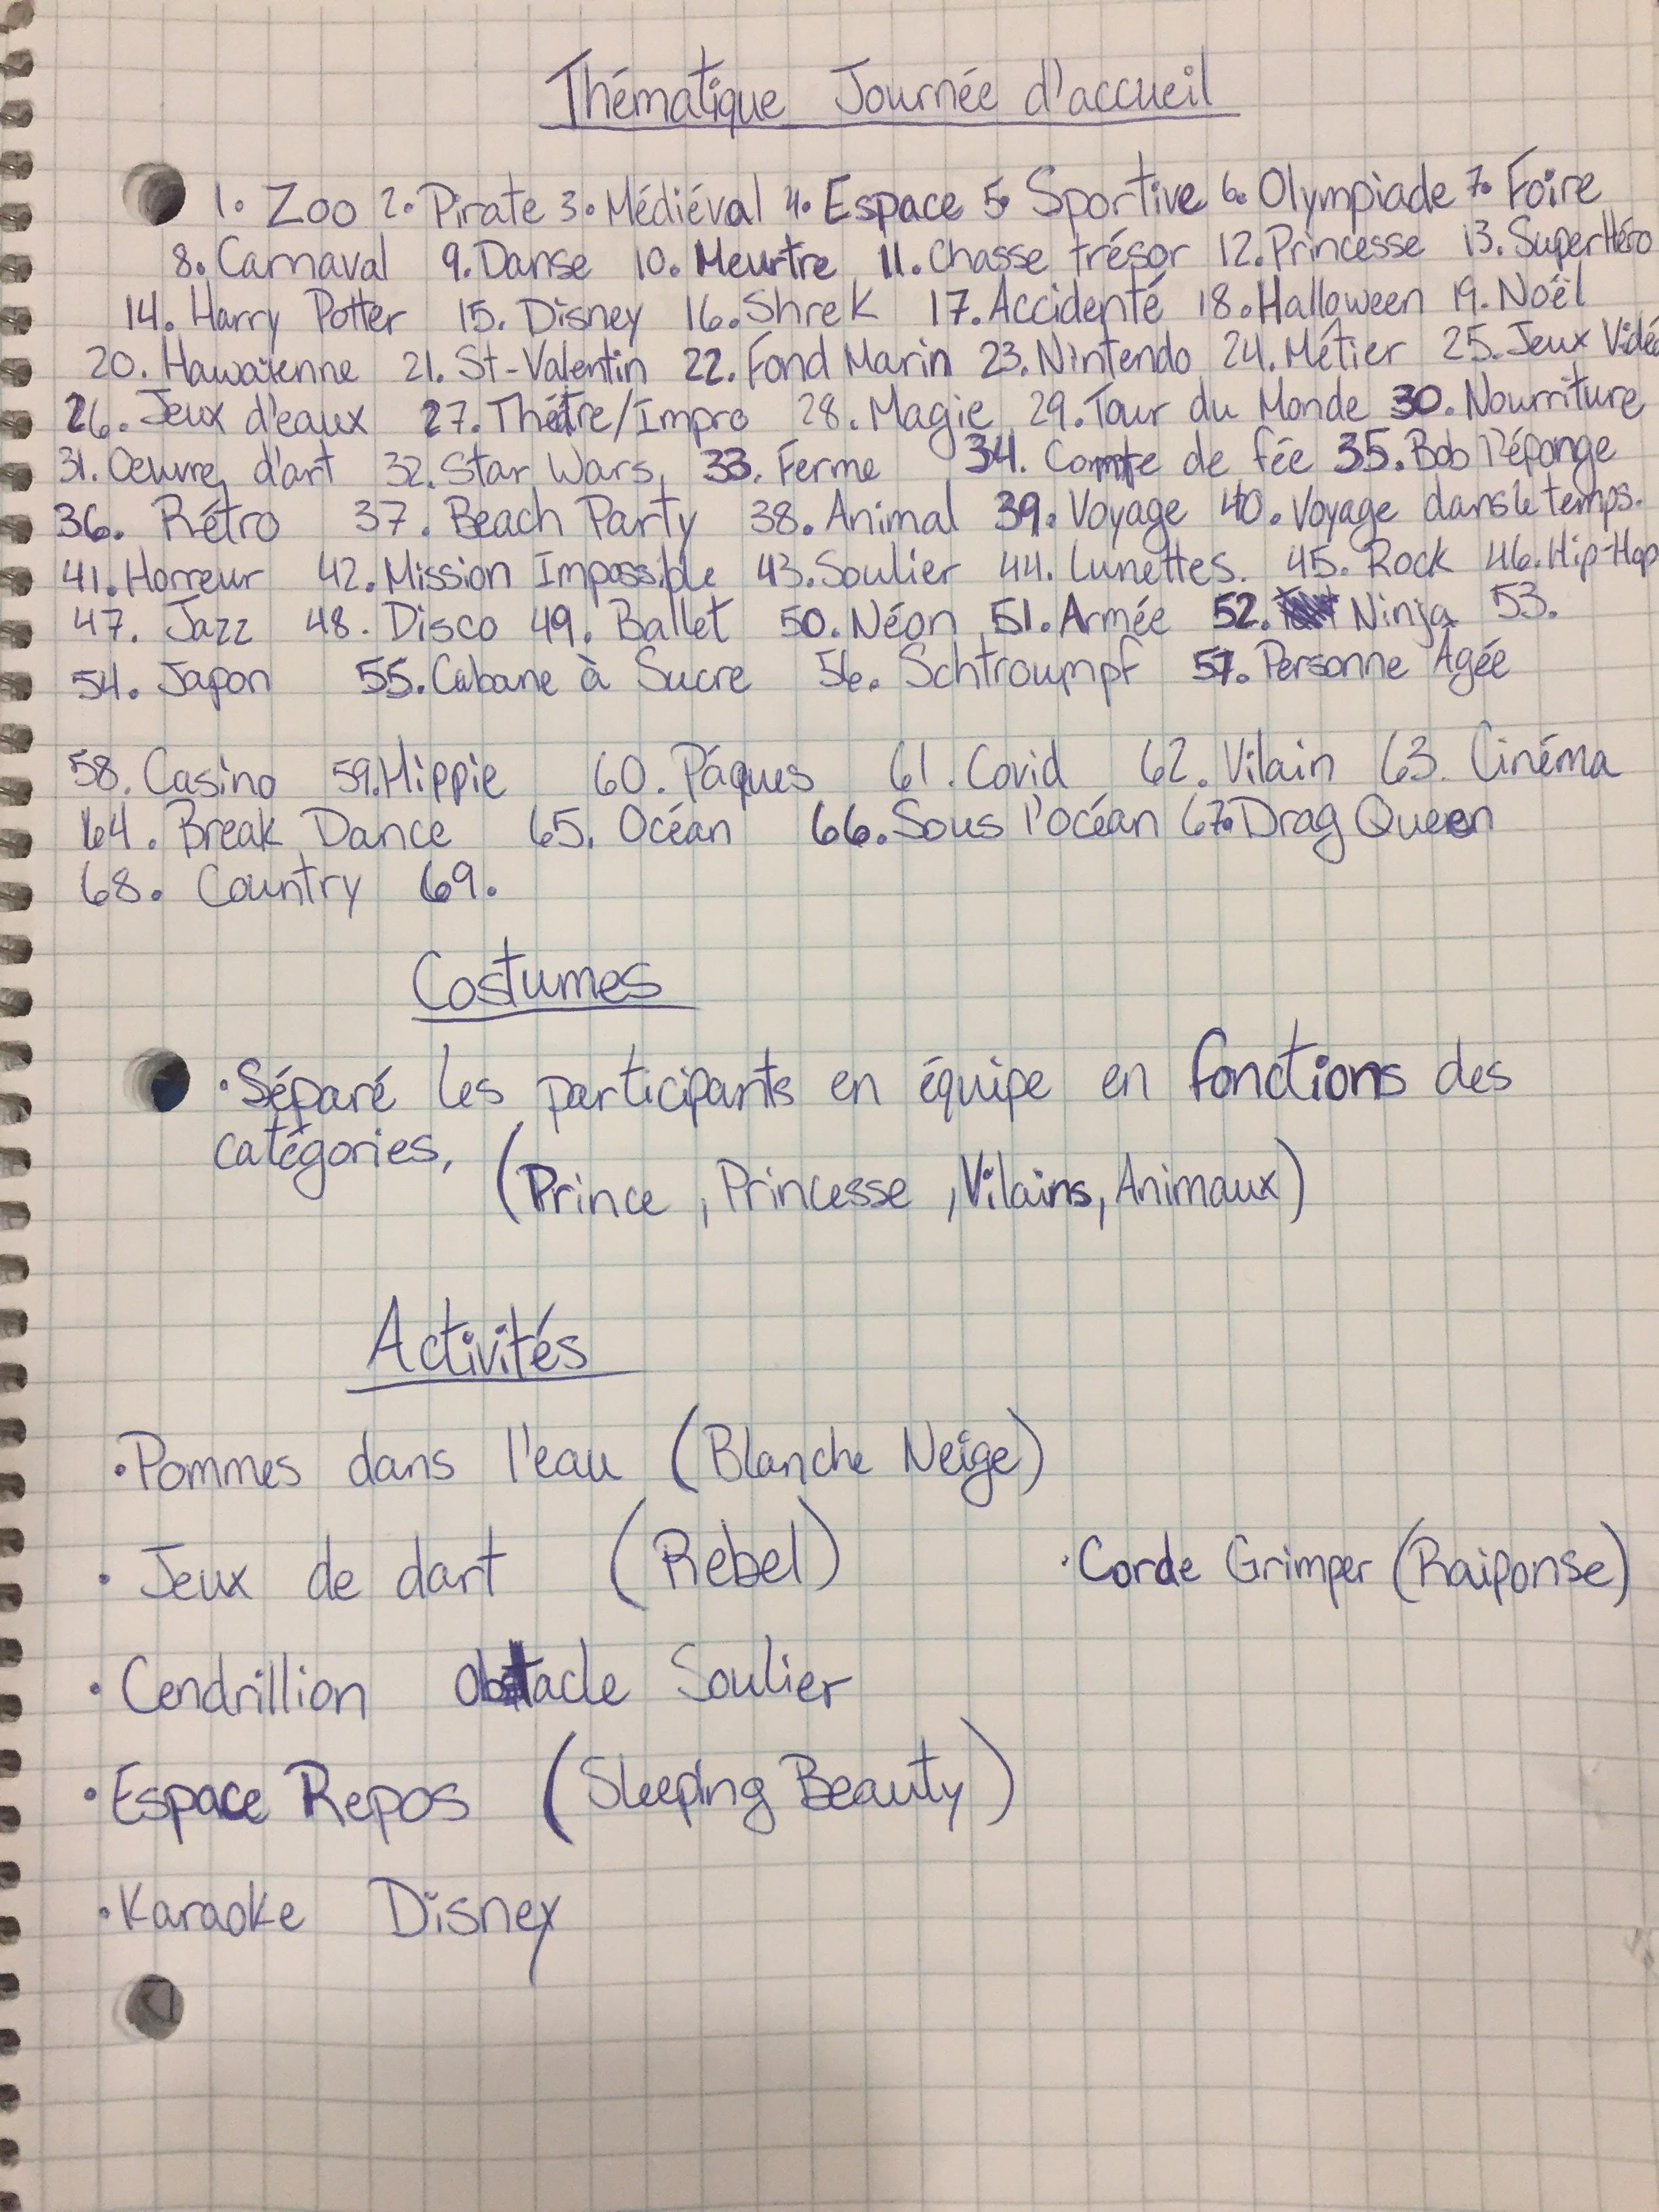 Thématique Journée d'accueil
1. Zoo 2. Pirate 3. Médiéval 4. Espace 5. Sportive 6. Olympiade 7. Foire
8. Carnaval 9. Danse 10. Meurtre 11. Chasse trésor 12. Princesse 13. SuperHéro
14. Harry Potter 15. Disney 16. Shrek 17. Accidenté 18. Halloween 19. Noël
20. Hawaïenne 21. St-Valentin 22. Fond Marin 23. Nintendo 24. Métier 25. Jeux Vidéo
26. Jeux d'eaux 27. Théâtre/Impro 28. Magie 29. Tour du Monde 30. Nourriture
31. Oeuvre d'art 32. Star Wars 33. Ferme 34. Comte de fée 35. Bob l'éponge
36. Rétro 37. Beach Party 38. Animal 39. Voyage 40. Voyage dans le temps.
41. Horreur 42. Mission Impossible 43. Soulier 44. Lunettes. 45. Rock 46. Hip-Hop
47. Jazz 48. Disco 49. Ballet 50. Néon 51. Armée 52. Ninja 53.
54. Japon 55. Cabane à Sucre 56. Schtroumpf 57. Personne Âgée
58. Casino 59. Hippie 60. Pâques 61. Covid 62. Vilain 63. Cinéma
64. Break Dance 65. Océan 66. Sous l'océan 67. Drag Queen
68. Country 69.
Costumes
• Séparé les participants en équipe en fonctions des
catégories, (Prince, Princesse, Vilains, Animaux)
Activités
• Pommes dans l'eau (Blanche Neige)
• Jeux de dart (Rebel) • Corde Grimper (Raiponse)
• Cendrillion Obstacle Soulier
• Espace Repos (Sleeping Beauty)
• Karaoke Disney